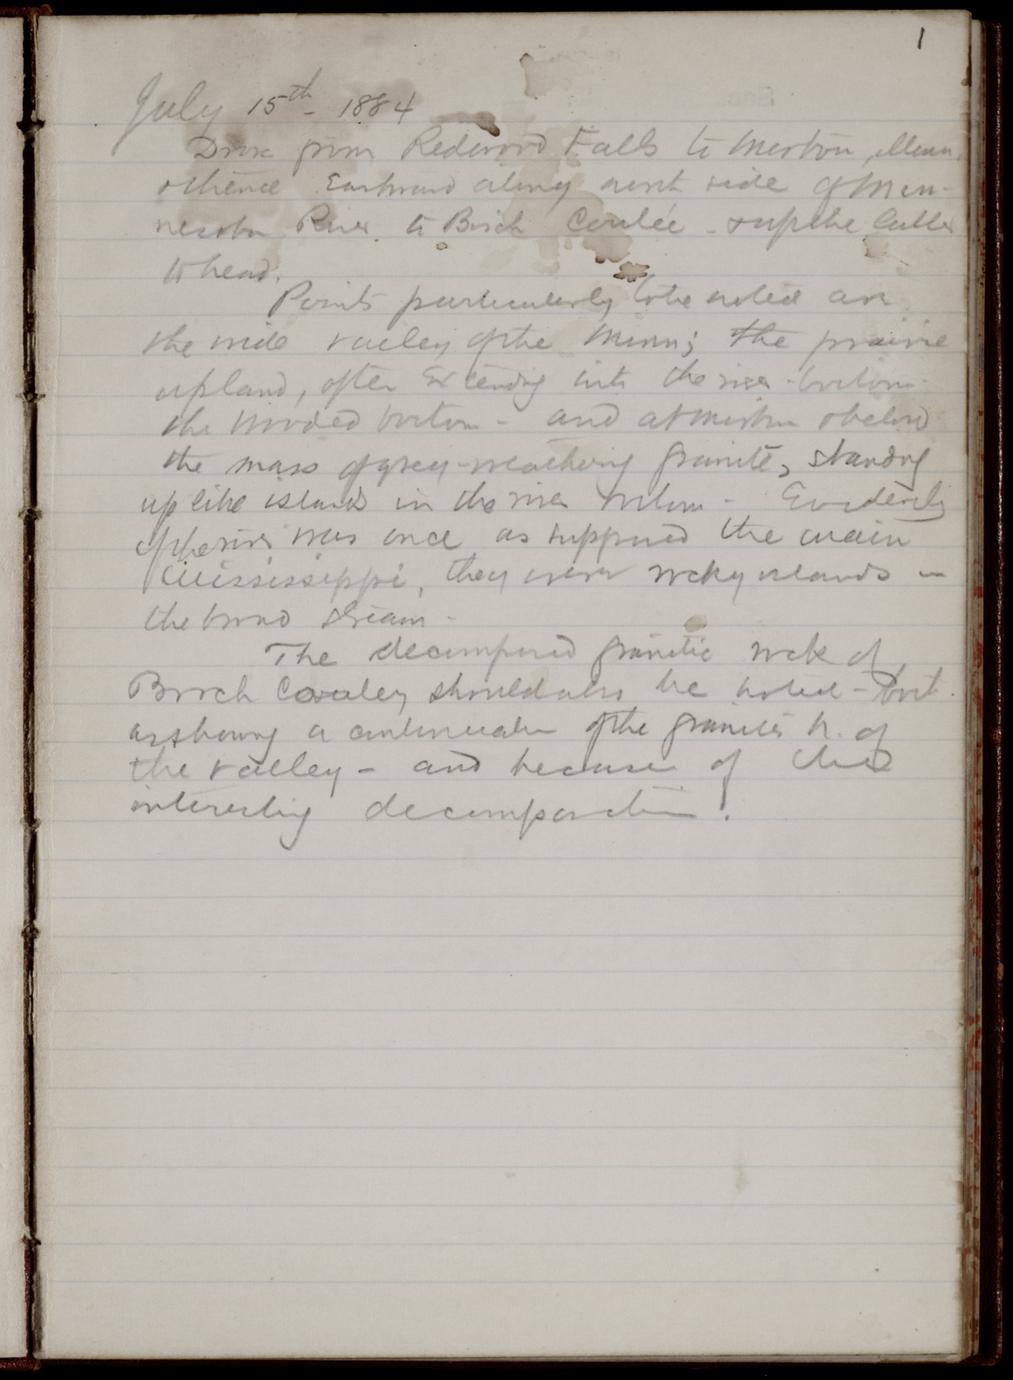 1
July 15th - 1884
Drove from Redwood Falls to Morton, Minn.
& thence Eastward along north side of Min-
nesota River to Birch Coulée - & up the latter
to head.
Points particularly to be noted are
the wide valley of the Minn; the prairie
upland, often extending into the river-bottom -
the wooded bottom - and at Morton & below
the mass of grey-weathering granite, standing
up like islands in the river bottom - Evidently
if the river was once as supposed the main
Mississippi, they were rocky islands in
the broad stream -
The decomposed granitic rock of
Birch Cooley should also be noted - both
as showing a continuation of the granites N. of
the valley - and because of the
interesting decomposition!